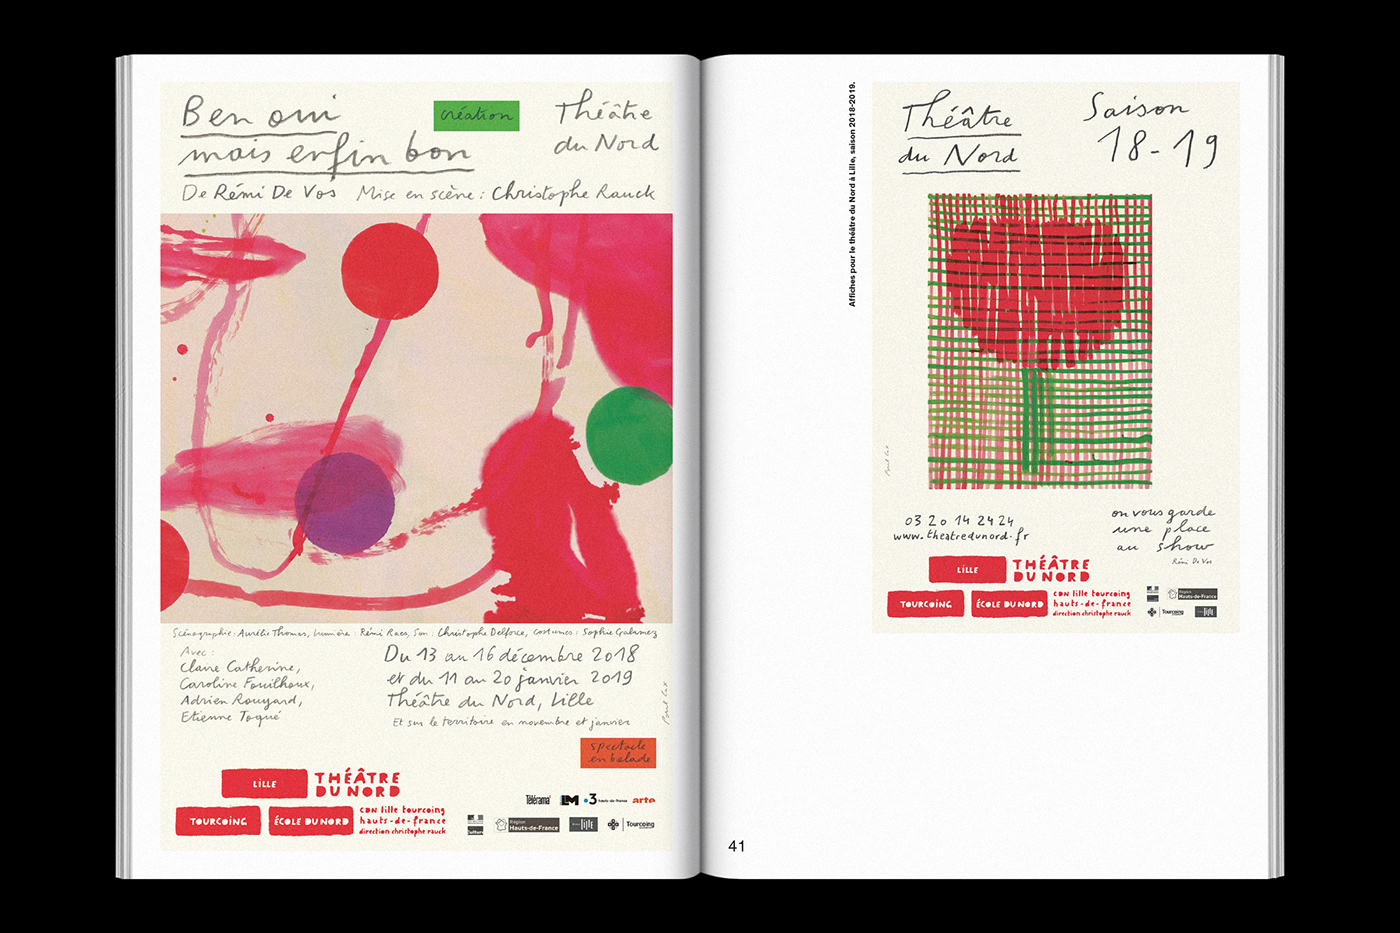 Ben oui
mais enfin bon
création
Théâtre
du Nord
De Rémi De Vos Mise en scène : Christophe Rauck
Scénographie : Aurélie Thomas, Lumière : Rémi Raes, Son : Christophe Delforce, costumes : Sophie
Avec :
Claire Catherine,
Caroline Fouilhoux,
Adrien Rouyard,
Etienne Toqué
Du 13 au 16 décembre 2018
et du 11 au 20 janvier 2019
Théâtre du Nord, Lille
Et sur le territoire en novembre et janvier
Paul Cox
spectacle
en balade
LILLE
THÉÂTRE
DU NORD
TOURCOING
ÉCOLE DU NORD
CDN lille tourcoing
hauts-de-france
direction christophe rauck
Télérama'
LM
3 hauts-de-france
arte
Région
Hauts-de-France
LILLE
Tourcoing
Affiches pour le théâtre du Nord à Lille, saison 2018-2019.
Théâtre
du Nord
Saison
18-19
Paul Cox
03 20 14 24 24
www.theatredunord.fr
on vous garde
une place
au show
Rémi De Vos
LILLE
THÉÂTRE
DU NORD
TOURCOING
ÉCOLE DU NORD
CDN lille tourcoing
hauts-de-france
direction christophe rauck
Région
Hauts-de-France
Tourcoing
LILLE
41